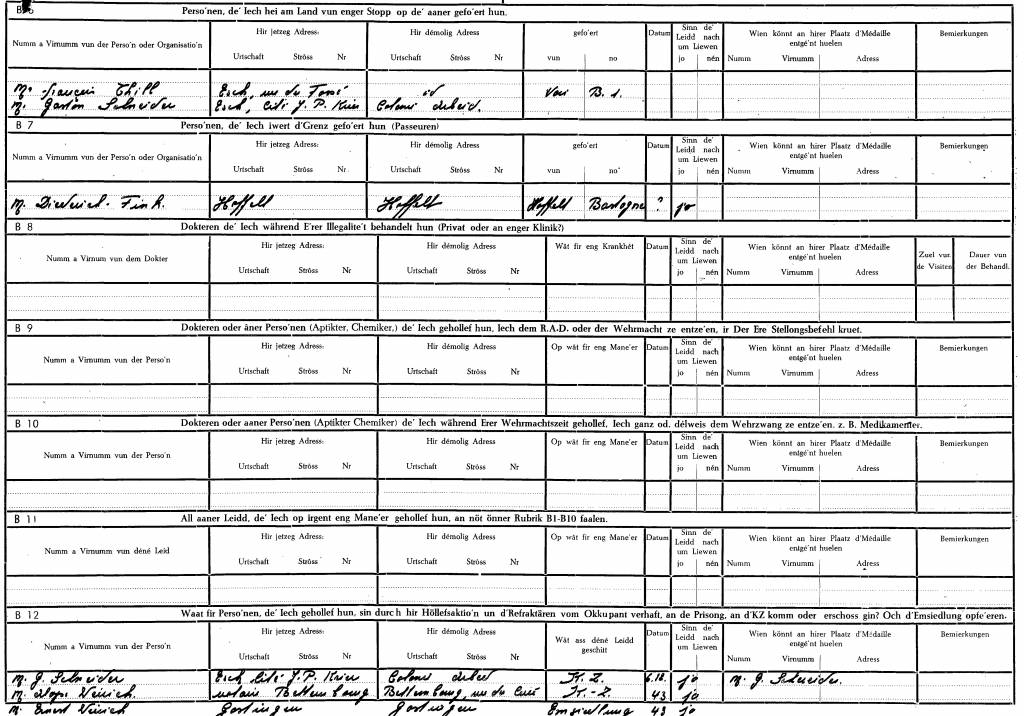 B 6 Perso'nen, de' Iech hei am Land vun enger Stopp op de' aaner gefo'ert hun.
Numm a Virnumm vun der Perso'n oder Organisatio'n
Hir jetzeg Adress: Urtschaft Ströss Nr
Hir démolig Adress Urtschaft Ströss Nr
gefo'ert vun no
Datum
Sinn de' Leidd nach um Liewen jo nén
Wien könnt an hirer Plaatz d'Médaille entgé'nt huelen Numm Virnumm Adress
Bemierkungen
Thill Esch, rue du Fossé id B. 1.
M. Gaston Schneider Esch, Cité J. P. Krier Colonie
B 7 Perso'nen, de' Iech iwert d'Grenz gefo'ert hun (Passeuren)
Numm a Virnumm vun der Perso'n oder Organisatio'n
Hir jetzeg Adress: Urtschaft Ströss Nr
Hir démolig Adress Urtschaft Ströss Nr
gefo'ert vun no'
Datum
Sinn de' Leidd nach um Liewen jo nén
Wien könnt an hirer Plaatz d'Médaille entgé'nt huelen Numm Virnumm Adress
Bemierkungen
M. Diederich-Fink. Hoffelt Hoffelt Hoffelt Bastogne ? jo
B 8 Dokteren de' Iech während E'rer Illegalite't behandelt hun (Privat oder an enger Klinik?)
Numm a Virnum vun dem Dokter
Hir jetzeg Adress: Urtschaft Ströss Nr
Hir démolig Adress Urtschaft Ströss Nr
Wät fir eng Krankhét
Datum
Sinn de' Leidd nach um Liewen jo nén
Wien könnt an hirer Plaatz d'Médaille entgé'nt huelen Numm Virnumm Adress
Zuel vun de Visiten
Dauer vun der Behandl.
B 9 Dokteren oder âner Perso'nen (Aptikter, Chemiker,) de' Iech gehollef hun, Iech dem R.A.D. oder der Wehrmacht ze entze'en, ir Der Ere Stellongsbefehl kruet.
Numm a Virnumm vun der Perso'n
Hir jetzeg Adress: Urtschaft Ströss Nr
Hir démolig Adress Urtschaft Ströss Nr
Op wät fir eng Mane'er
Datum
Sinn de' Leidd nach um Liewen jo nén
Wien könnt an hirer Plaatz d'Médaille entgé'nt huelen Numm Virnumm Adress
Bemierkungen
B 10 Dokteren oder aaner Perso'nen (Aptikter Chemiker) de' Iech während Erer Wehrmachtszeit gehollef, Iech ganz od. délweis dem Wehrzwang ze entze'en. z. B. Medikamenter.
Numm a Virnumm vun der Perso'n
Hir jetzeg Adress: Urtschaft Ströss Nr
Hir démolig Adress Urtschaft Ströss Nr
Op wät fir eng Mane'er
Datum
Sinn de' Leidd nach um Liewen jo nén
Wien könnt an hirer Plaatz d'Médaille entgé'nt huelen Numm Virnumm Adress
Bemierkungen
B 11 All aaner Leidd, de' Iech op irgent eng Mane'er gehollef hun, an nöt önner Rubrik B1-B10 faalen.
Numm a Virnumm vun déné Leid
Hir jetzeg Adress: Urtschaft Ströss Nr
Hir démolig Adress Urtschaft Ströss Nr
Op wät fir eng Mane'er
Datum
Sinn de' Leidd nach um Liewen jo nén
Wien könnt an hirer Plaatz d'Médaille entgé'nt huelen Numm Virnumm Adress
Bemierkungen
B 12 Waat fir Perso'nen, de' Iech gehollef hun, sin durch hir Höllefsaktio'n un d'Refraktären vom Okkupant verhaft, an de Prisong, an d'KZ komm oder erschoss gin? Och d'Emsiedlung opfe'eren.
Numm a Virnumm vun der Perso'n
Hir jetzeg Adress: Urtschaft Ströss Nr
Hir démolig Adress Urtschaft Ströss Nr
Wät ass déné Leidd geschitt
Datum
Sinn de' Leidd nach um Liewen jo nén
Wien könnt an hirer Plaatz d'Médaille entgé'nt huelen Numm Virnumm Adress
Bemierkungen
M. G. Schneider Esch Cité J. P. Krier Colonie K. Z. jo M. G. Schneider.
M. Weirich notaire Bettembourg Bettembourg, rue du Curé K.-Z. 43 jo
M. Ernest Weirich Gostingen Gostingen Emsiedlung 43 jo